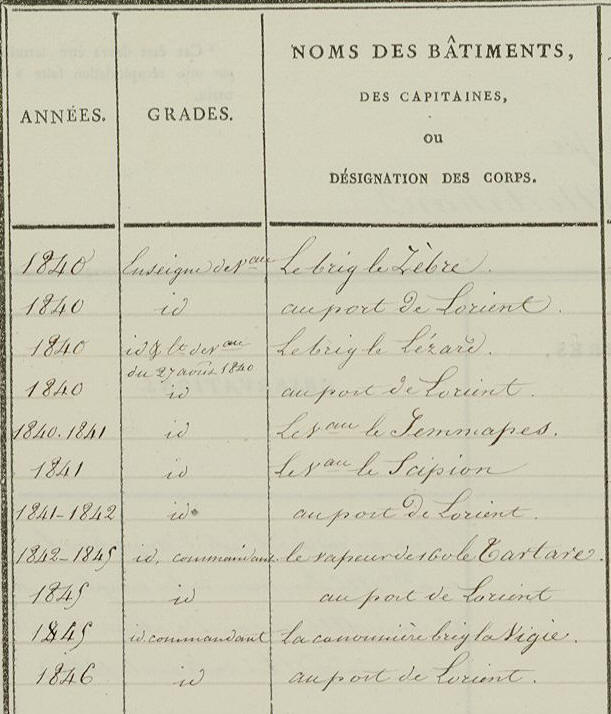 NOMS DES BÂTIMENTS,
ANNÉES. GRADES. DES CAPITAINES,
OU
DÉSIGNATION DES CORPS.
1840 Enseigne de Vau Le brig le Zèbre.
1840 id au port de Lorient.
1840 id & Lt. de Vau Le brig le Lézard.
du 27 août 1840
1840 id au port de Lorient.
1840.1841 id Le Vau le Jemmapes.
1841 id le Vau le Scipion
1841-1842 id au port de Lorient.
1842-1845 id. commandant le vapeur de 160 le Tartare.
1845 id au port de Lorient
1845 id. commandant La canonnière brig la Vigie.
1846 id au port de Lorient.